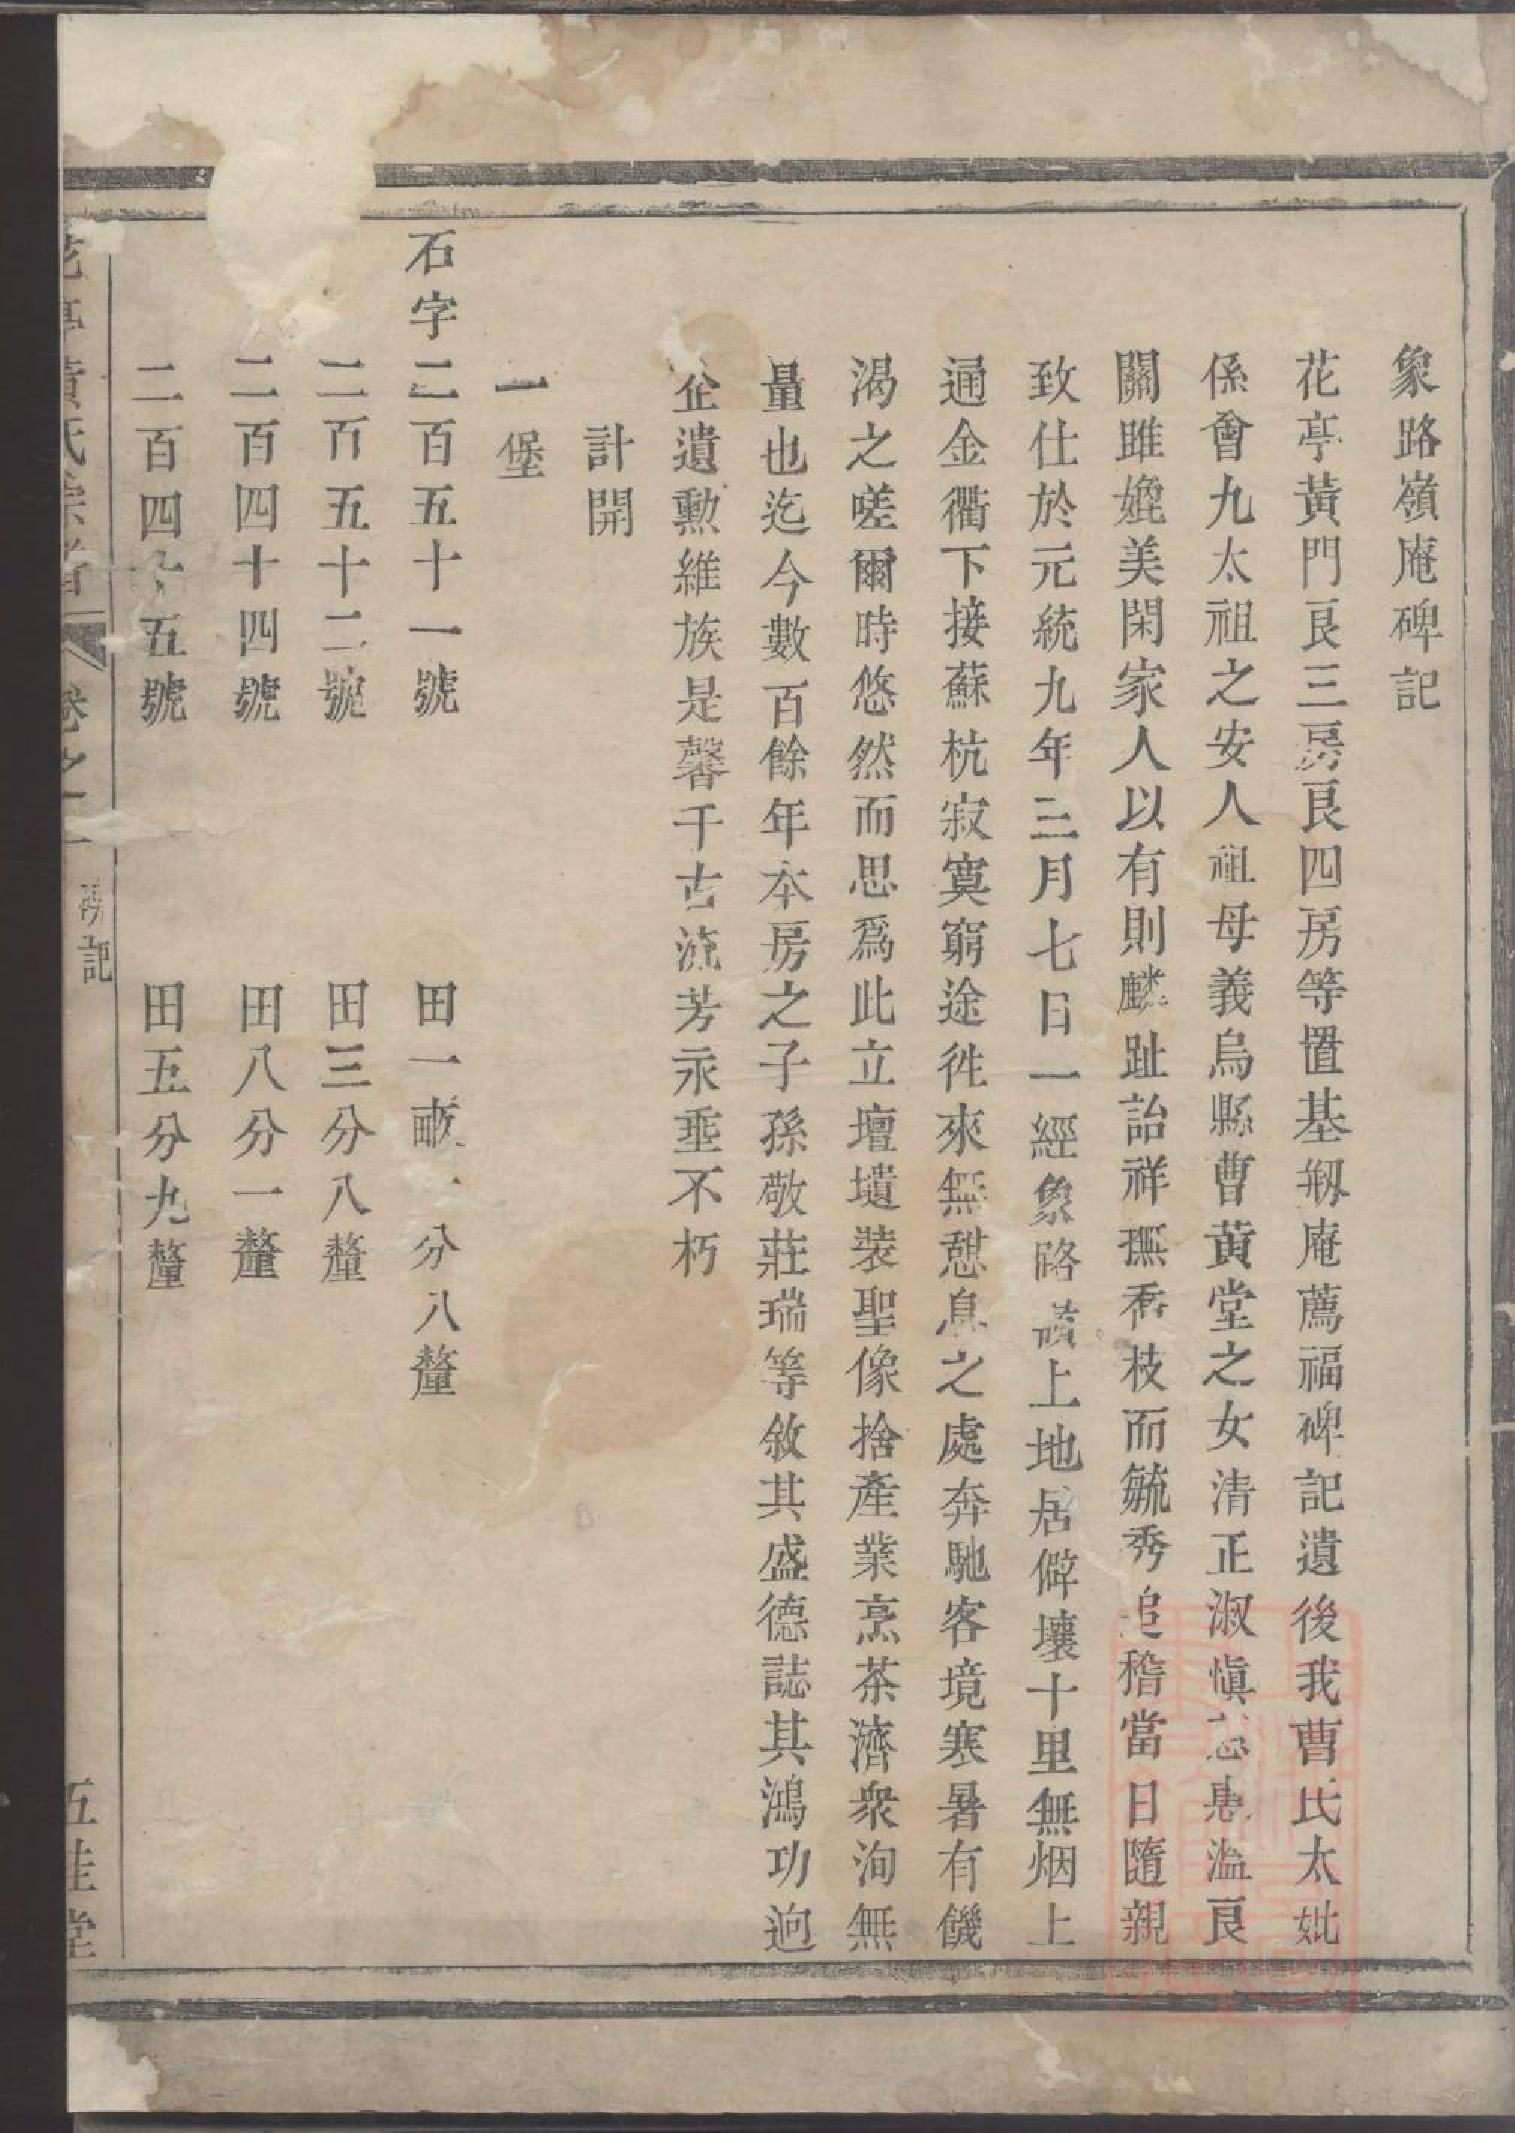 象路嶺庵碑記
花亭黃門良三房良四房等置基剏庵薦福碑記遺後我曹氏太妣
係會九太祖之安人祖母義烏縣曹黃堂之女清正淑愼溫良
關雎媲美閑家人以有則麟趾詒祥撫喬枝而毓秀追稽當日隨親
致仕於元統九年三月七日一經象路嶺上地居僻壤十里無烟上
通金衢下接蘇杭寂寞窮途徃來無憇息之處奔馳客境寒暑有饑
渴之嗟爾時悠然而思爲此立壇墳裝聖像捨產業烹茶濟衆洵無
量也迄今數百餘年本房之子孫敬莊瑞等敘其盛德誌其鴻功逈
企遺勲維族是馨千古流芳永垂不朽
計開
一堡
石字二百五十一號 田一畝一分八釐
二百五十二號 田三分八釐
二百四十四號 田八分一釐
二百四十五號 田五分九釐
花亭黃氏宗譜 卷之一 碑記 五桂堂